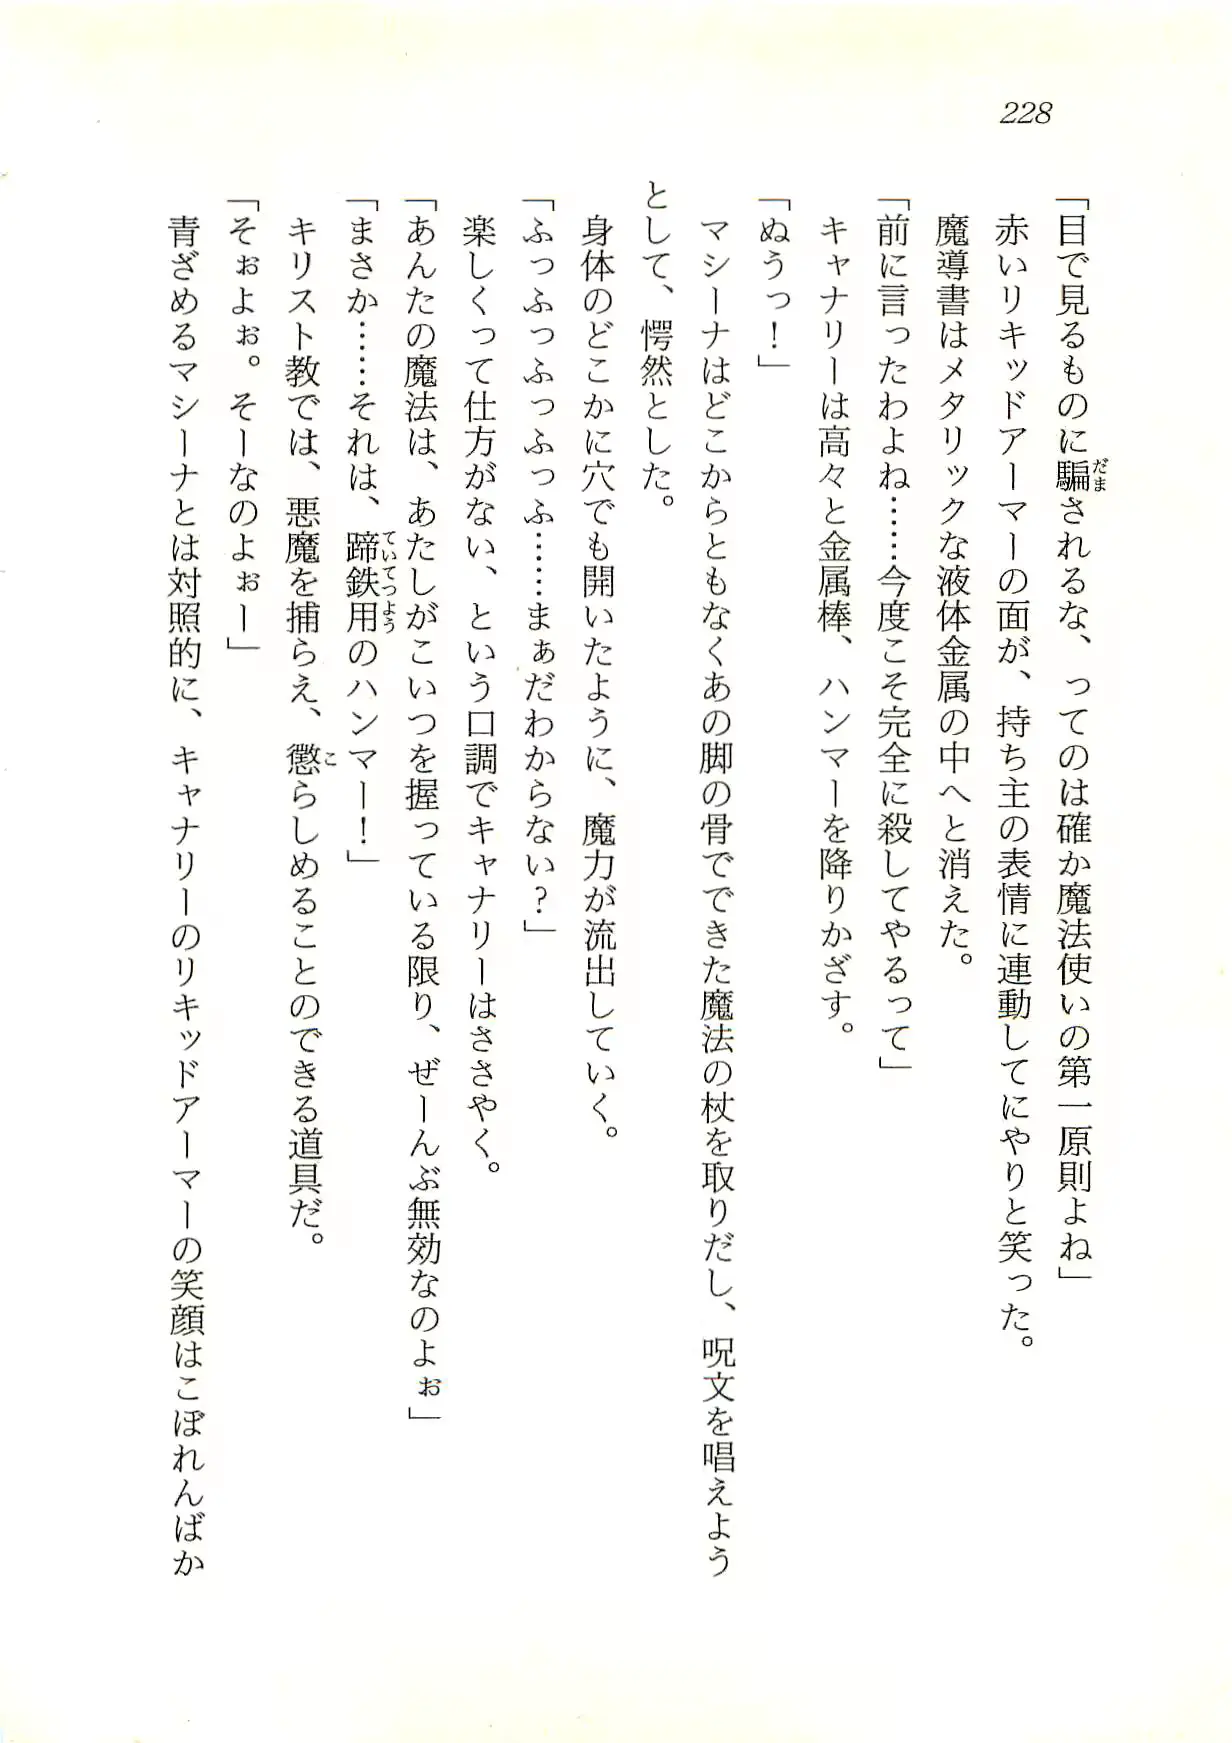 228
「目で見るものに騙されるな、ってのは確か魔法使いの第一原則よね」
赤いリキッドアーマーの面が、持ち主の表情に連動してにやりと笑った。
魔導書はメタリックな液体金属の中へと消えた。
「前に言ったわよね……今度こそ完全に殺してやるって」
キャナリーは高々と金属棒、ハンマーを降りかざす。
「ぬうっ！」
マシーナはどこからともなくあの脚の骨でできた魔法の杖を取りだし、呪文を唱えよう
として、愕然とした。
身体のどこかに穴でも開いたように、魔力が流出していく。
「ふっふっふっふっふ……まぁだわからない？」
楽しくって仕方がない、という口調でキャナリーはささやく。
「あんたの魔法は、あたしがこいつを握っている限り、ぜーんぶ無効なのよぉ」
「まさか……それは、蹄鉄用のハンマー！」
キリスト教では、悪魔を捕らえ、懲らしめることのできる道具だ。
「そぉよぉ。そーなのよぉー」
青ざめるマシーナとは対照的に、キャナリーのリキッドアーマーの笑顔はこぼれんばか